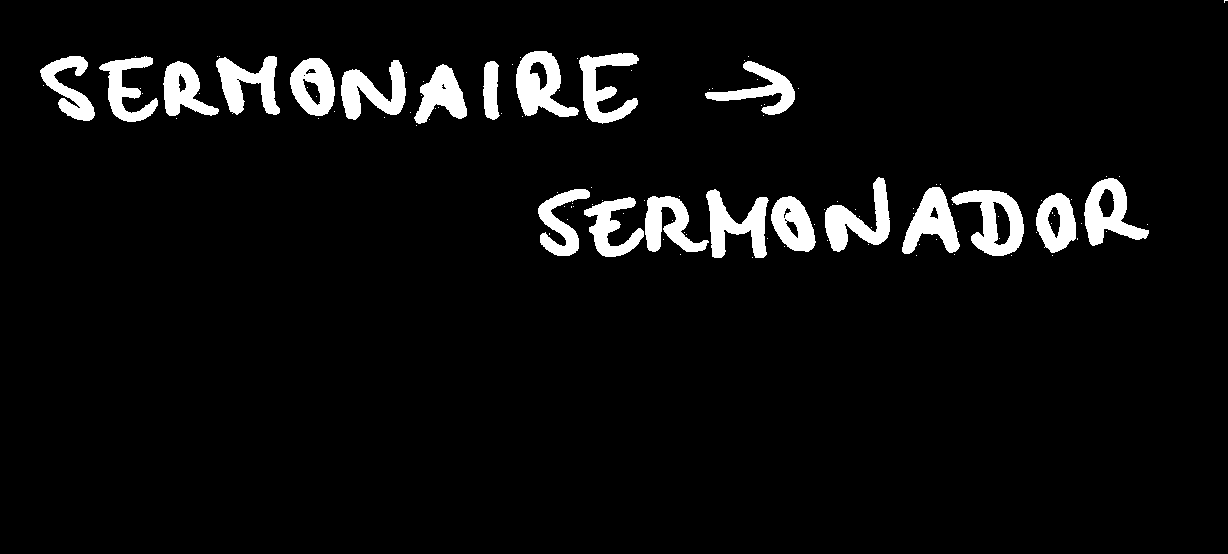 SERMONAIRE →
SERMONADOR